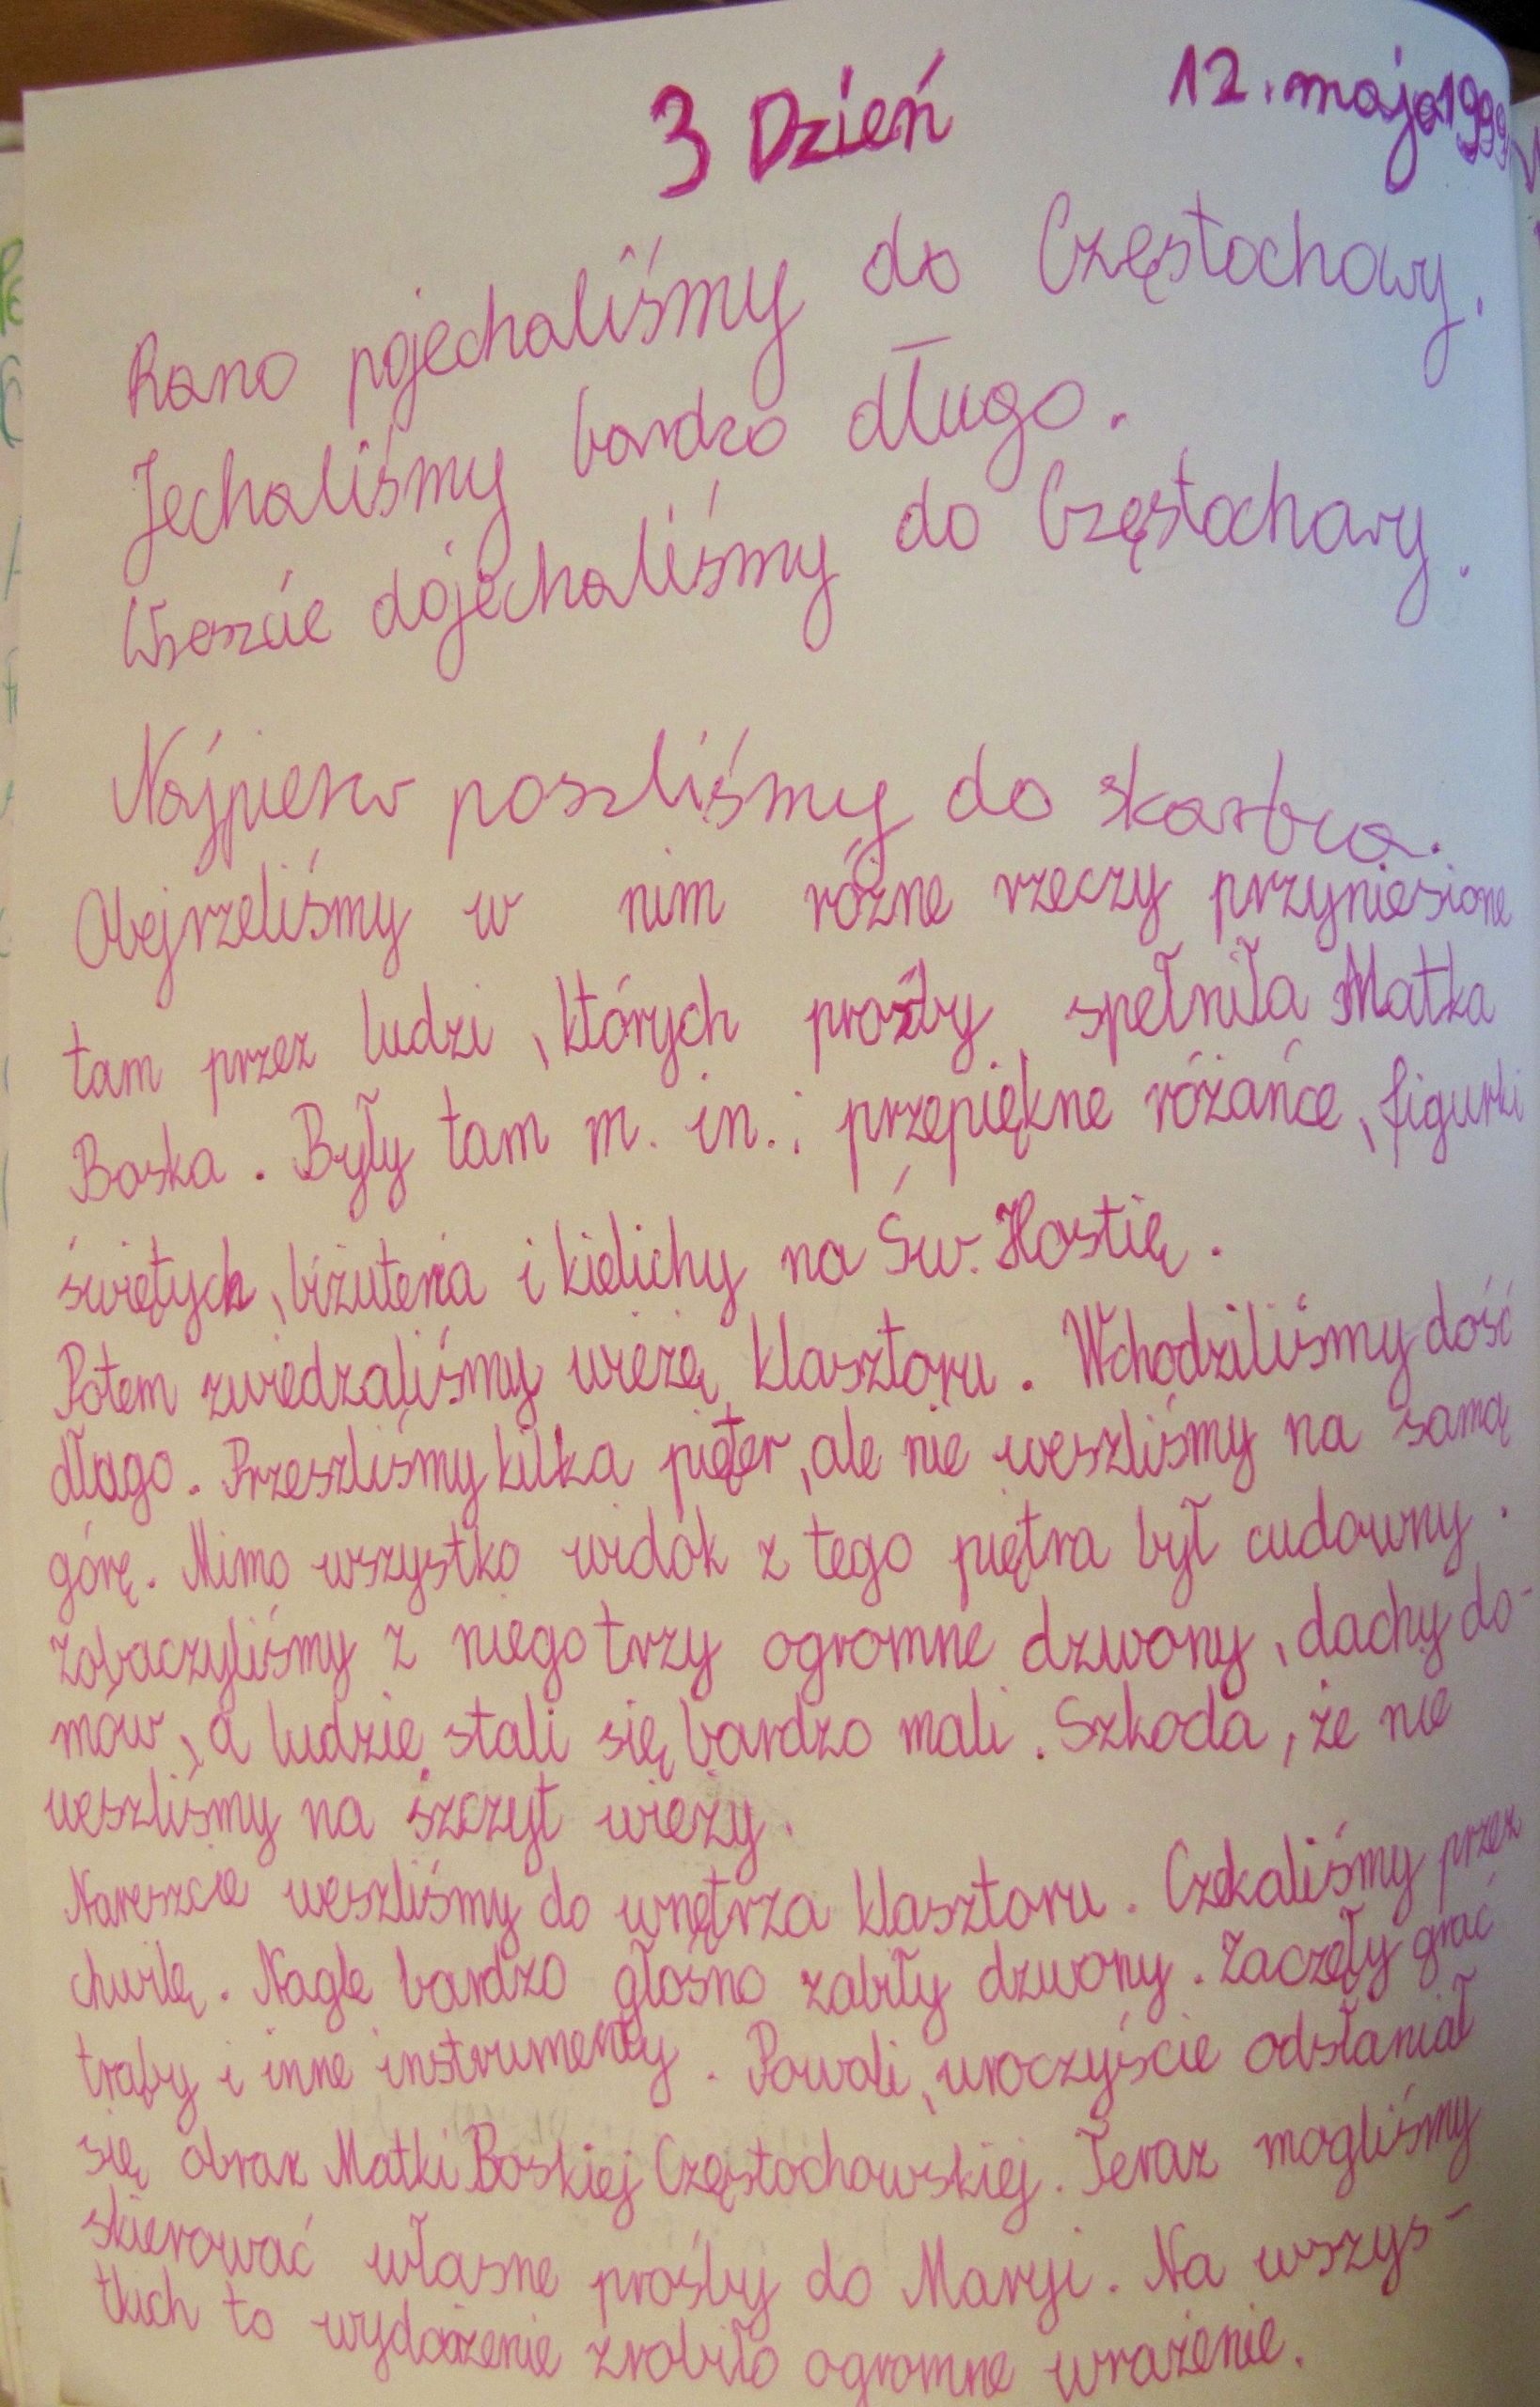 3 Dzień
12. maja 1999
Rano pojechaliśmy do Częstochowy.
Jechaliśmy bardzo długo.
Wreszcie dojechaliśmy do Częstochowy.
Najpierw poszliśmy do skarbca.
Obejrzeliśmy w nim różne rzeczy przyniesione
tam przez ludzi, których prośby spełniła Matka
Boska. Były tam m. in.: przepiękne różańce, figurki
świętych, biżuteria i kielichy na Św. Hostię.
Potem zwiedzaliśmy wieżę klasztoru. Wchodziliśmy dość
długo. Przeszliśmy kilka pięter, ale nie weszliśmy na samą
górę. Mimo wszystko widok z tego piętra był cudowny.
Zobaczyliśmy z niego trzy ogromne dzwony, dachy do-
mów, a ludzie stali się bardzo mali. Szkoda, że nie
weszliśmy na szczyt wieży.
Nareszcie weszliśmy do wnętrza klasztoru. Czekaliśmy przez
chwilę. Nagle bardzo głośno zabiły dzwony. Zaczęły grać
trąby i inne instrumenty. Powoli, uroczyście odsłaniał
się obraz Matki Boskiej Częstochowskiej. Teraz mogliśmy
skierować własne prośby do Maryi. Na wszys-
tkich to wydarzenie zrobiło ogromne wrażenie.